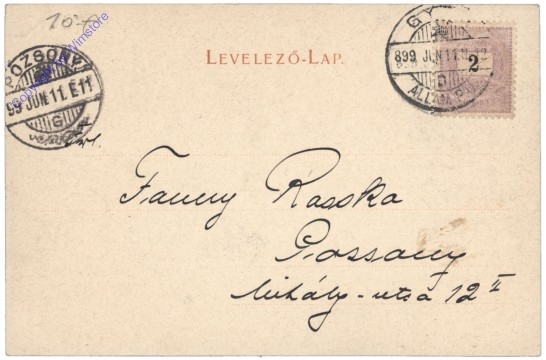 10.-
LEVELEZŐ-LAP.
POZSONY
99 JUN. 11. E11
G
GY
899 JUN 11
D
ÁLLAM P
2
Fanny Rosska
Possony
Mihály-utsa 12 II